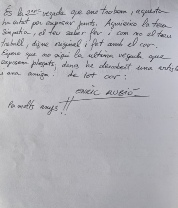 És la 1ª vegada que ens trobem, i aquesta
ha estat per expressar junts. Agraeixo la teva
simpatia, el teu saber fer i com no el teu
treball, digne, original i fet amb el cor.
Espero que no sigui la última vegada que
exposem plegats, doncs he descobert una artista
i una amiga. de tot cor:
ENRIC RUBIÓ
Per molts anys!!